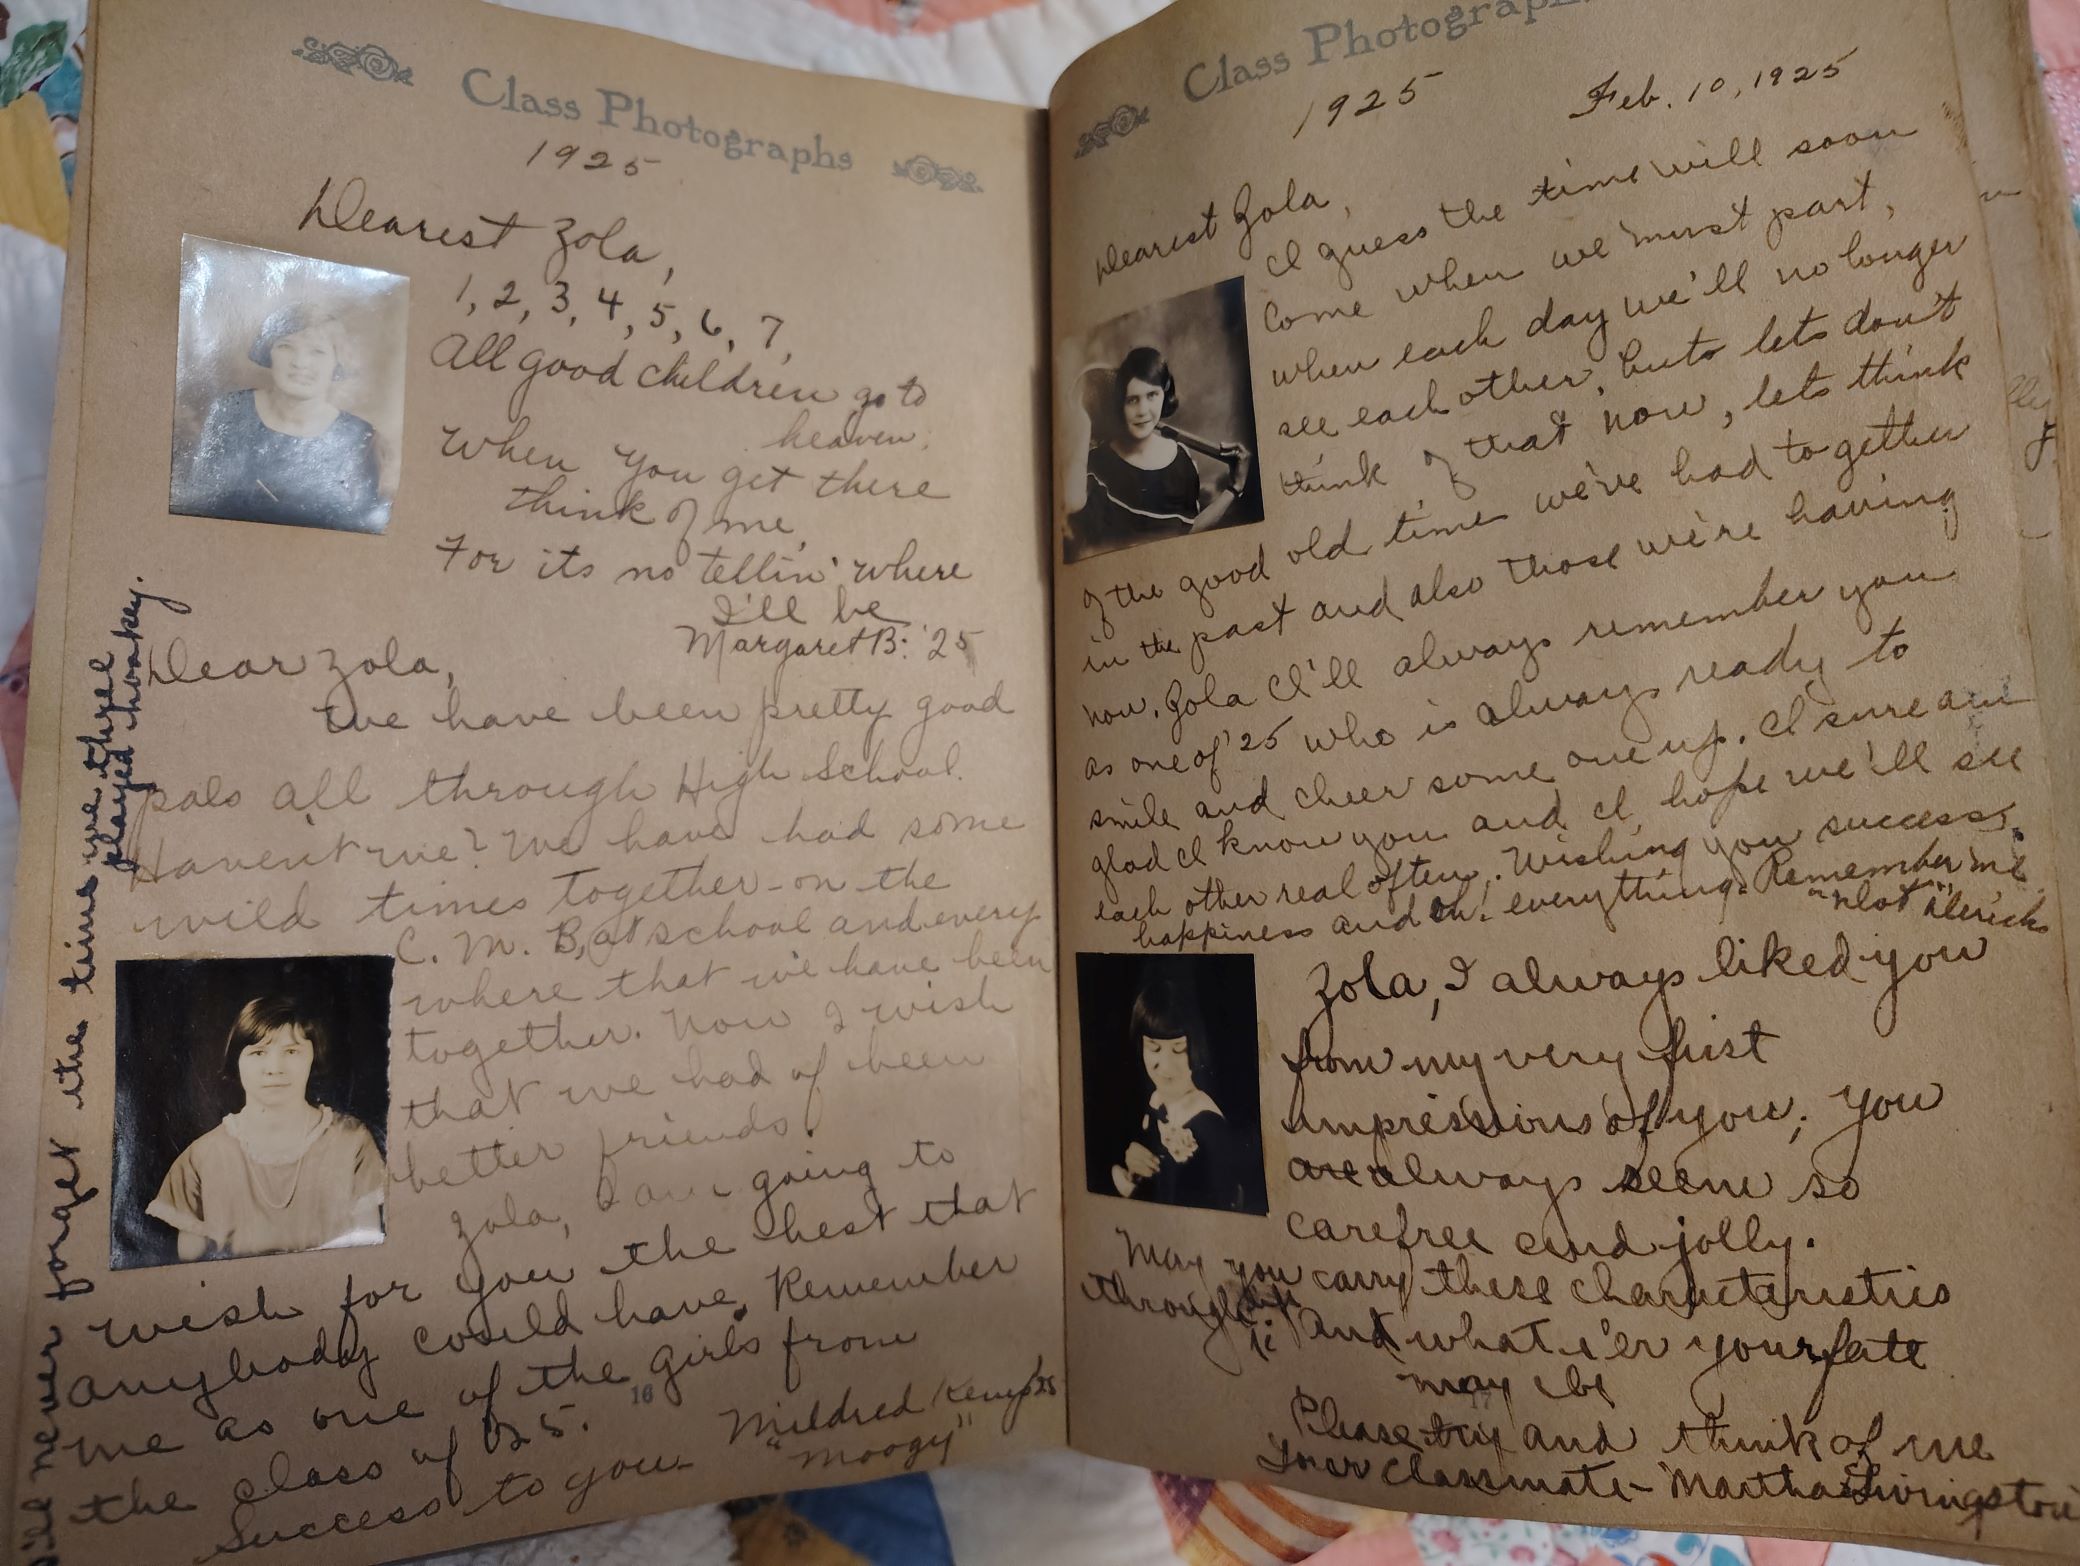 Class Photographs
1925
Dearest Zola,
1, 2, 3, 4, 5, 6, 7,
All good children go to
heaven.
When you get there
think of me,
For its no tellin' where
I'll be
Margaret B. '25
Dear Zola,
We have been pretty good
pals all through High School.
Haven't we? We have had some
wild times together - on the
C. M. B, at school and every
where that we have been
together. Now I wish
that we had of been
better friends.
Zola, I am going to
wish for you the best that
anybody could have. Remember
me as one of the girls from
the class of '25.
Success to you -
Mildred Kemp '25
"Moogy"
16
I'll never forget the time we three
played hookey.
Class Photographs
1925
Feb. 10, 1925
Dearest Zola,
I guess the time will soon
come when we must part,
when each day we'll no longer
see each other, but lets don't
think of that now, lets think
of the good old times we've had together
in the past and also those we're having
now. Zola I'll always remember you
as one of '25 who is always ready to
smile and cheer some one up. I sure am
glad I know you and I hope we'll see
each other real often. Wishing you success,
happiness and oh! everything. Remember me
Zola, I always liked you
from my very first
impressions of you; you
are always seem so
carefree and jolly.
May you carry these characteristics
through life
And what e'er your fate
may be
Please try and think of me
Your Classmate - Martha Livingston